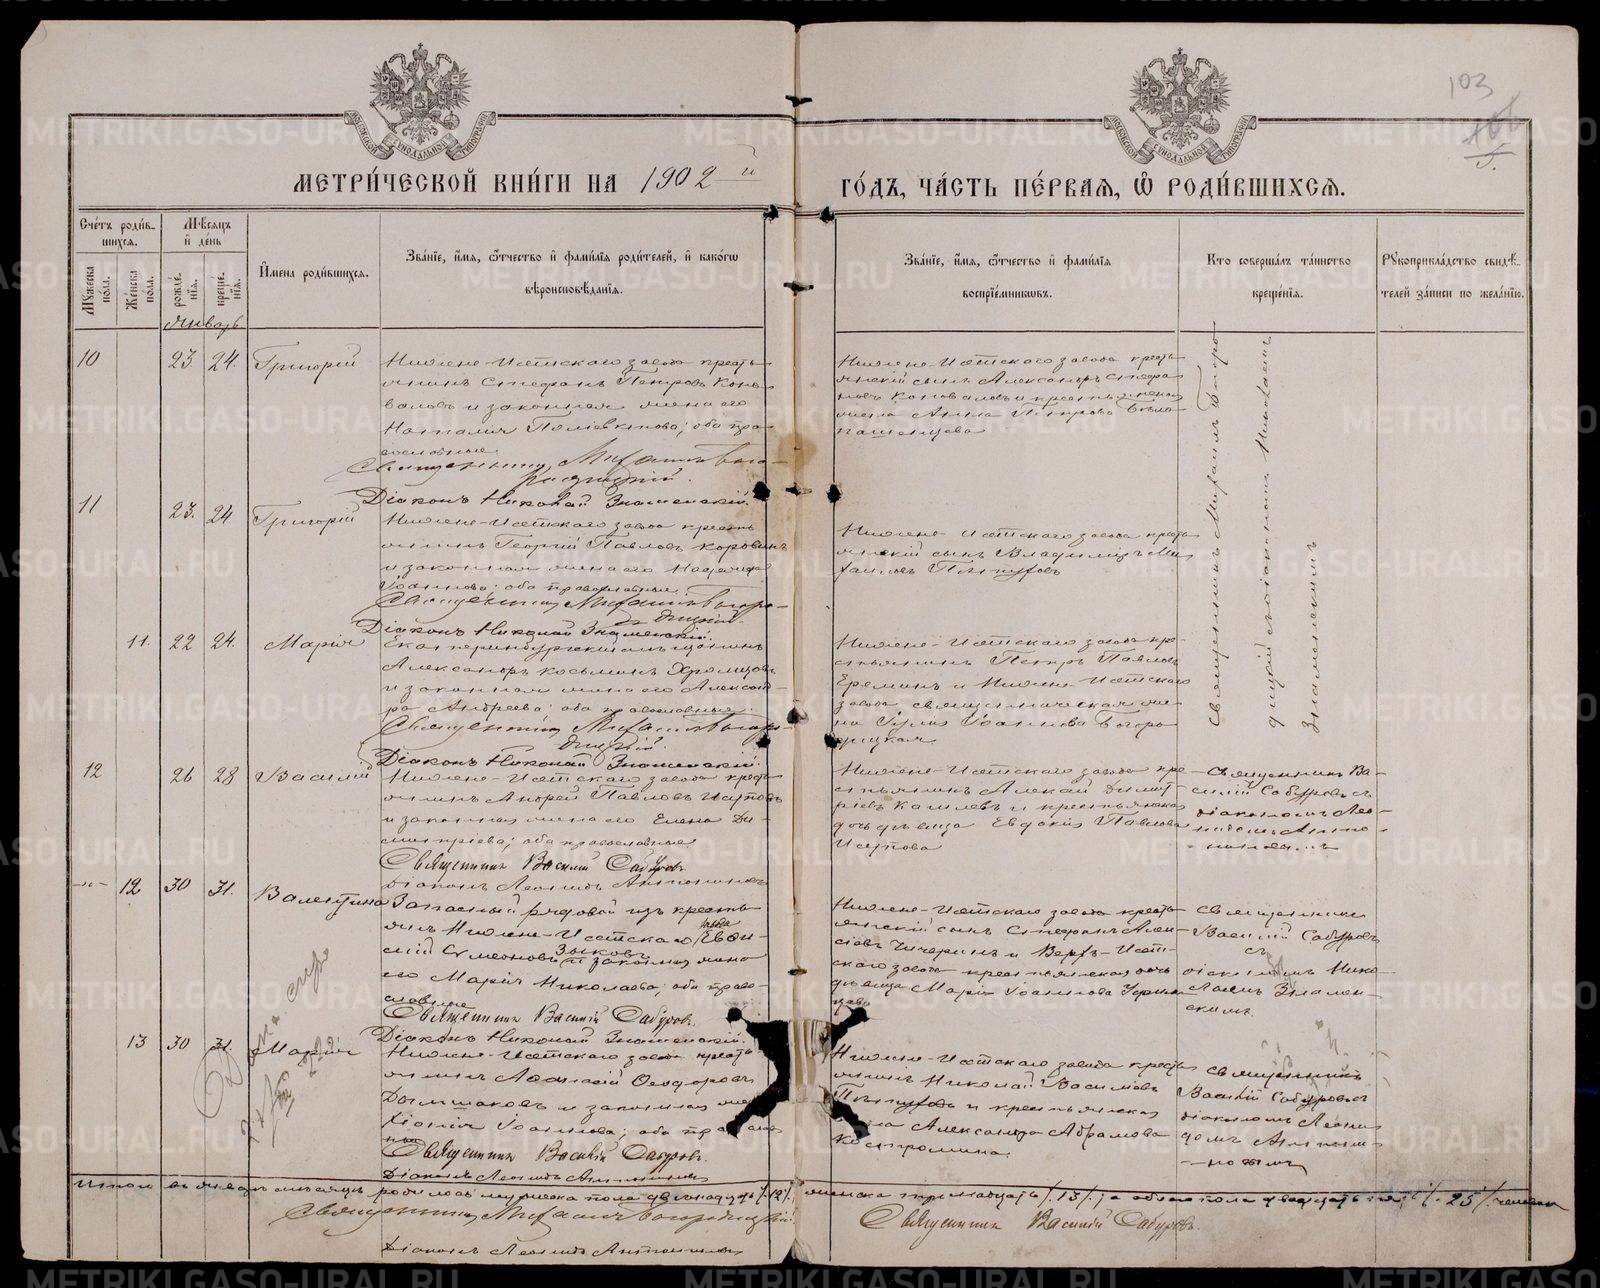 103
5.
МОСКОВСКОЙ СѴНОДАЛЬНОЙ ТИПОГРАФІИ
МОСКОВСКОЙ СѴНОДАЛЬНОЙ ТИПОГРАФІИ
МЕТРИ́ЧЕСКОЙ КНИ́ГИ НА 1902 й
ГО́ДЪ, ЧА́СТЬ ПЕ́РВАЯ, Ѡ РОДИ́ВШИХСЯ.
Сче́тъ роди́в-
шихся.
Мѣ́сяцъ
и де́нь
Имена роди́вшихся.
Зва́нїе, и́мя, ѻ҆́тчество и фами́лїя роди́телей, и како́гѡ
вѣроисповѣ́данїя.
Му́жеска
по́ла.
Же́нска
по́ла.
рожде́-
нїя.
креще́-
нїя.
Январь
Зва́нїе, и́мя, ѻ҆́тчество и фами́лїя
воспрїе́мниковъ.
Кто соверша́лъ та́инство
креще́нїя.
Рꙋкоприкла́дство свидѣ́-
телей за́писи по жела́нїю.
10 23 24. Григорій
Нижне-Исетскаго завода кресть-
янинъ Стефанъ Петровъ Коно-
валовъ и законная жена его
Наталія Поліевктова; оба пра-
вославные.
Священникъ Михаилъ Бого-
родицкій.
Діаконъ Николай Знаменскій.
Нижне-Исетскаго завода кресть-
янскій сынъ Александръ Стефа-
новъ Коноваловъ и крестьянская
жена Анна Петрова Бѣло-
пашенцева
Священникъ Михаилъ Богоро-
дицкій съ діакономъ Николаемъ
Знаменскимъ
11 23. 24 Григорій
Нижне-Исетскаго завода кресть-
янинъ Георгій Павловъ Коровинъ
и законная жена его Надежда
Іоаннова; оба православные.
Священникъ Михаилъ Богоро-
дицкій.
Діаконъ Николай Знаменскій.
Нижне-Исетскаго завода кресть-
янскій сынъ Владиміръ Ми-
хаиловъ Пѣтуховъ
11. 22 24. Марія
Екатеринбургскій мѣщанинъ
Александръ Косьминъ Хромцовъ
и законная жена его Алексан-
ра Андреева; оба православные.
Священникъ Михаилъ Богоро-
дицкій.
Діаконъ Николай Знаменскій.
Нижне-Исетскаго завода кре-
стьянинъ Петръ Павловъ
Ереминъ и Нижне-Исетскаго
завода священническая же-
на Юлія Іоаннова Богоро-
дицкая
12 26 28 Василій
Нижне-Исетскаго завода кресть-
янинъ Андрей Павловъ Исуповъ
и законная жена его Елена Ди-
митріева; оба православные
Священникъ Василій Сабуровъ
Діаконъ Леонидъ Антониновъ
Нижне-Исетскаго завода кре-
стьянинъ Алексій Димит-
ріевъ и крестьянская
дочь дѣвица Евдокія Павлова
Исупова
Священникъ Ва-
силій Сабуровъ съ
діакономъ Лео-
нидомъ Анто-
ниновымъ
-"- 12 30 31. Валентина
Запасный рядовой изъ кресть-
янъ Нижне-Исетскаго завода Евѳи-
мій Сѵмеоновъ Зыковъ и законная жена
его Марія Николаева; оба право-
славные
Священникъ Василій Сабуровъ.
Діаконъ Николай Знаменскій.
Нижне-Исетскаго завода кресть-
янскій сынъ Стефанъ Алек-
сіевъ Чичеринъ и Верхъ-Исет-
скаго завода крестьянская дочь
дѣвица Марія Іоаннова
Священникъ
Василій Сабуровъ
съ
діакономъ Нико-
лаемъ Знамен-
скимъ
13 30 31. Марія
Нижне-Исетскаго завода кресть-
янинъ Аѳанасій Ѳеодоровъ
Дымшаковъ и законная жена
Хіонія Іоаннова; оба православ-
ные
Священникъ Василій Сабуровъ.
Діаконъ Леонидъ Антониновъ
Нижне-Исетскаго завода кресть-
янинъ Николай Василіевъ
Пѣтуховъ и крестьянская
жена Александра Абрамова
Костромина.
Священникъ
Василій Сабуровъ съ
діакономъ Леони-
домъ Антони-
новымъ
Итого въ январѣ мѣсяцѣ родилось мужеска пола двѣнадцать /.12/., женска тринадцать /.13/., а обоего пола двадцать пять /.25/. человѣкъ
Священникъ Михаилъ Богородицкій.
Священникъ Василій Сабуровъ.
Діаконъ Леонидъ Антониновъ
METRIKI.GASO-URAL.RU